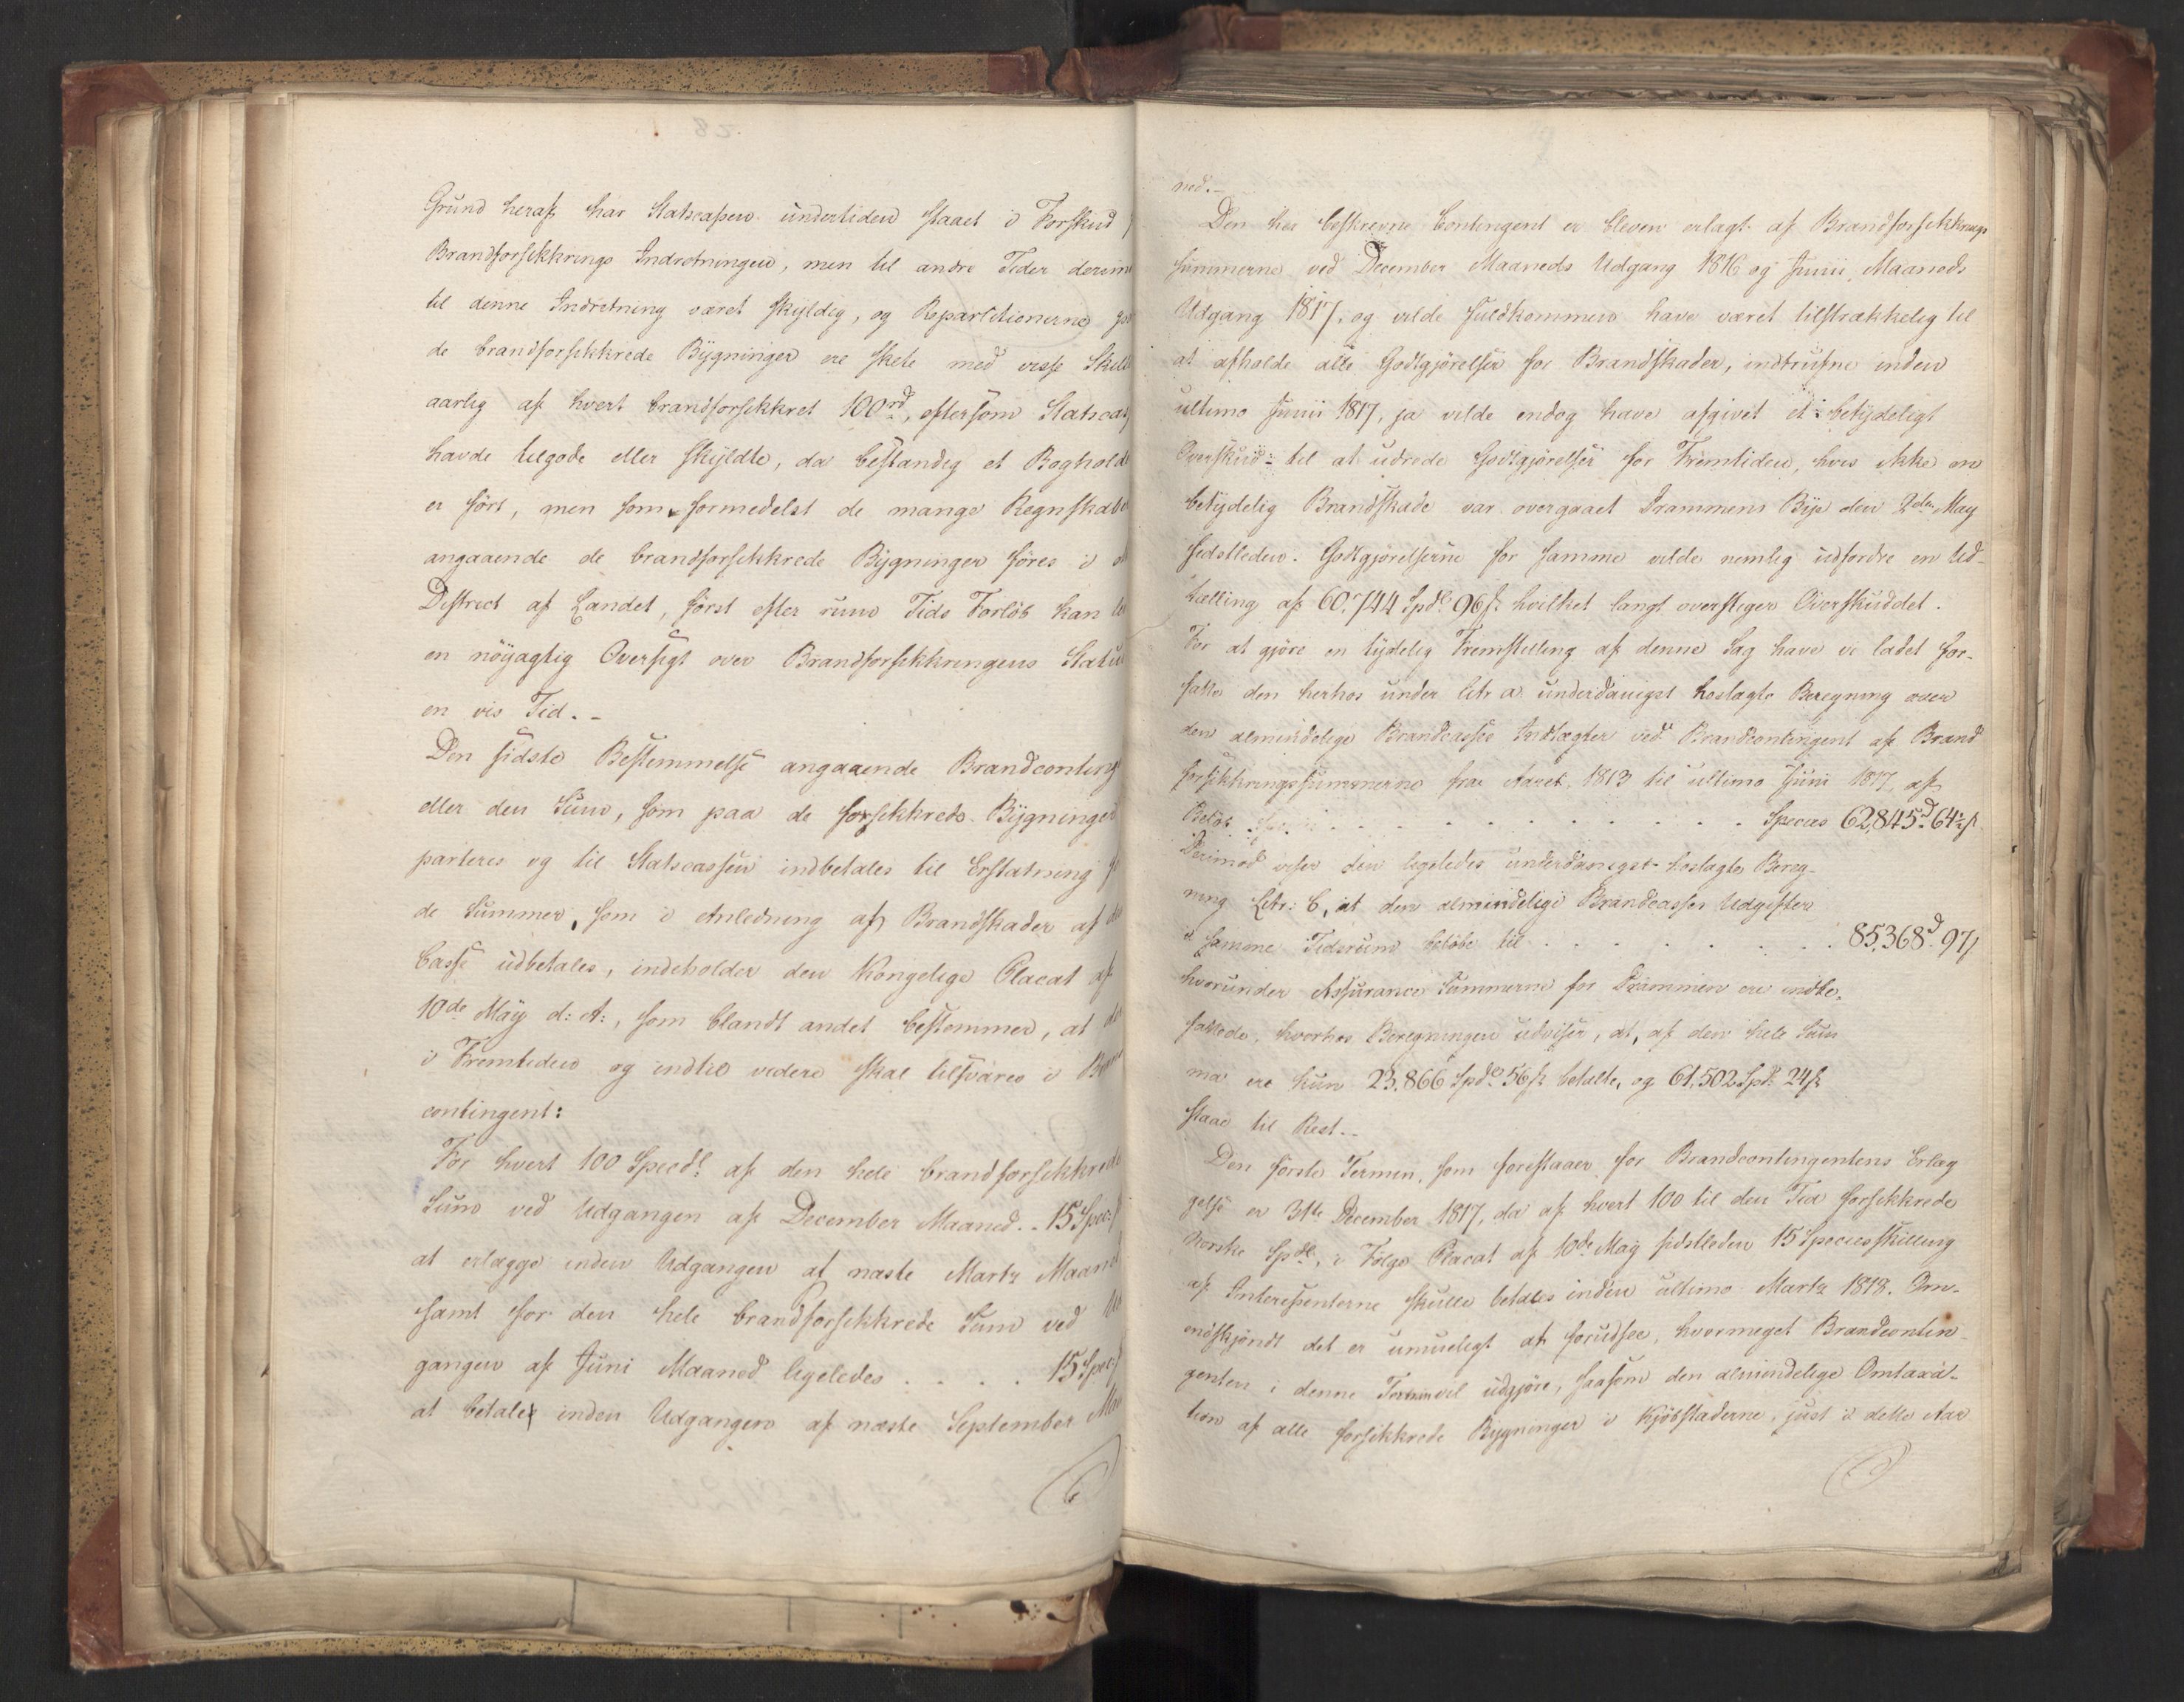 Grund heraf, har Statscassen undertiden staaet i Forskud
Brandforsikkrings Indretningen, men til andre Tider derim
til denne Indretning været skyldig, og Repartitionerne
de brandforsikkrede Bygninger ere skete med visse Skill
aarlig af hvert brandforsikkret 100rd, eftersom Statscas
havde tilgode eller skyldte, da bestandig et Boghold
er ført, men som formedelst de mange Regnskabe
angaaende de brandforsikkrede Bygninger føres i
District af Landet, først efter rum Tids Forløb kan
en nøyagtig Oversigt over Brandforsikkringens Statu
en vis Tid. -
Den sidste Bestemmelse angaaende Brandconting
eller den Sum, som paa de forsikkrede Bygninger
parteres og til Statscassen indbetales til Erstatning
de Summer, som i Anledning af Brandskader af
Casse udbetales, indeholder den Kongelige Placat af
10de May d: A:, som blandt andet bestemmer, at
i Fremtiden og indtil videre skal tilsvares i
contingent:
For hvert 100 Specdl. af den hele brandforsikkrede
Sum ved Udgangen af December Maaned. - 15 Spec:
at erlægge inden Udgangen af næste Martz Maaned
samt for den hele brandforsikkrede Sum ved
gangen af Juni Maaned ligeledes . . . . 15 Spec:
at betales inden Udgangen af næste September
ned. -
Den her beskrevne Contingent er bleven erlagt af Brandforsikkrings
summerne ved December Maaneds Udgang 1816 og Junii Maaneds
Udgang 1817, og vilde fuldkommen have været tilstrækkelig til
at afholde alle Godtgjørelser for Brandskader, indtrufne inden
ultimo Junii 1817, ja vilde endog have afgivet et betydeligt
Overskud til at udrede Godtgjørelser for Fremtiden, hvis ikke en
betydelig Brandskade var overgaaet Drammens Bye den 2den May
sidstleden. Godtgjørelserne for samme vilde nemlig udfordre en Ud-
tælling af 60,744 Spdl. 96 s. hvilket langt overstiger Overskuddet.
For at gjøre en tydelig Fremstilling af denne Sag have vi ladet for-
fatte den herhos under Litr a. underdanigst hoslagte Beregning over
den almindelige Brandcasses Indtægter ved Brandcontingent af Brand
forsikkringssummerne fra Aaret 1813 til ultimo Juni 1817, af
Beløb . . . . . . . . . . . . Species 62,845d 64½ s.
Derimod viser den ligeledes underdanigst hoslagte Bereg-
ning Litr: b, at den almindelige Brandcasses Udgifter
i samme Tidsrum beløbe til . . . . . . . . 85,368d 97 s
hvorunder Assurance Summerne for Drammen ere indbe-
fattede, hvorhos Beregningen udviser, at, af den hele Sum
ma ere kun 23,866 Spdl. 56 s. betalte, og 61,502 Spdl. 24 s
staae til Rest. -
Den første Termin, som forestaaer for Brandcontingentens Erlæg
gelse er 31te December 1817, da af hvert 100 til den Tid forsikkrede
Norske Spdl., i Følge Placat af 10de May sidstleden 15 Speciesskilling
af Interessenterne skulle betales inden ultimo Martz 1818. Om-
endskjøndt det er umueligt at forudsee, hvormeget Brandcontin-
genten i denne Termin vil udgjøre, saasom den almindelige Omtaxa-
tion af alle forsikkrede Bygninger i Kjøbstæderne, just i dette Aar